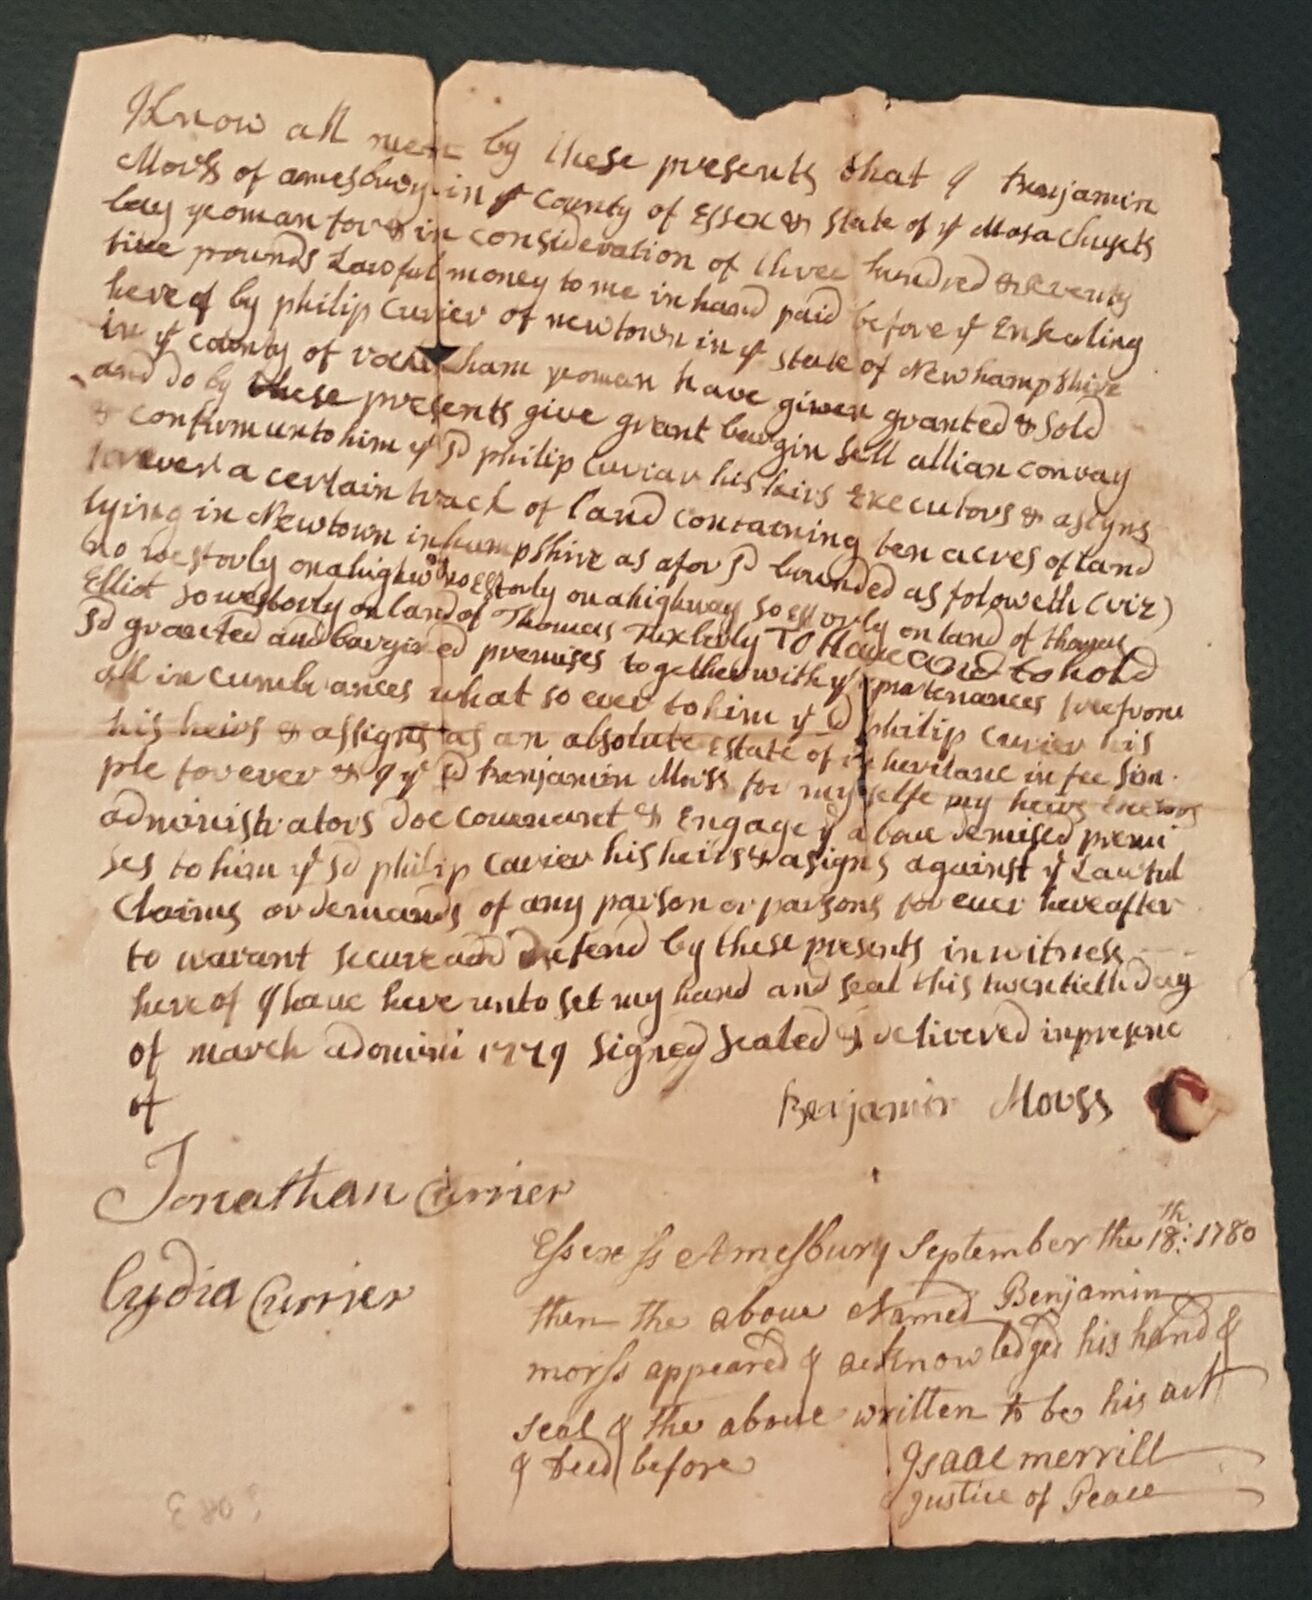 Know all men by these presents that I Benjamin
Morss of amesbury in ye County of Essex & State of ye Masachusets
bay yeoman for & in consideration of three hundred & seventy
five pounds Lawful money to me in hand paid before ye Ensealing
hereof by philip Curier of newtown in ye State of Newhampshire
in ye county of rockingham yeoman have given granted & sold
and do by these presents give grant bargin sell allian convay
& confirm unto him ye sd philip Curiar his heirs Executors & asigns
forever a certain track of land containing ten acres of land
lying in Newtown in hampshire as afor sd bounded as foloweth (viz)
no westorly on a highway no Estorly on a highway so Estorly on land of thomas
Elliot so westorly on land of Thomas Tuxbery TO Have and to hold
sd granted and bargined premises together with ye apurtenances free from
all in cumbrances what so ever to him ye sd philip Curier his
his heirs & assigns as an absolute Estate of in heritanc in fee sim
ple for ever & I ye sd Benjamin Morss for my selfe my heirs
administrators doe covenant & Engage ye above demised premi
ses to him ye sd philip Curier his heirs & asigns against ye Lawful
Claims or demands of any parson or parsons for ever hereafter
to warant secure and defend by these presents in witness
here of I have here unto set my hand and seal this twentieth day
of march adomini 1779 Signed Sealed & delivered in presenc
of
Benjamin Morss
Jonathan Currier
Lydia Currier
Essex ss Amesbury September the 18th: 1780
then the above Named Benjamin
morss appeared & acknowledged his hand &
seal & the above written to be his act
& deed before
Isaac merrill
Justice of Peace